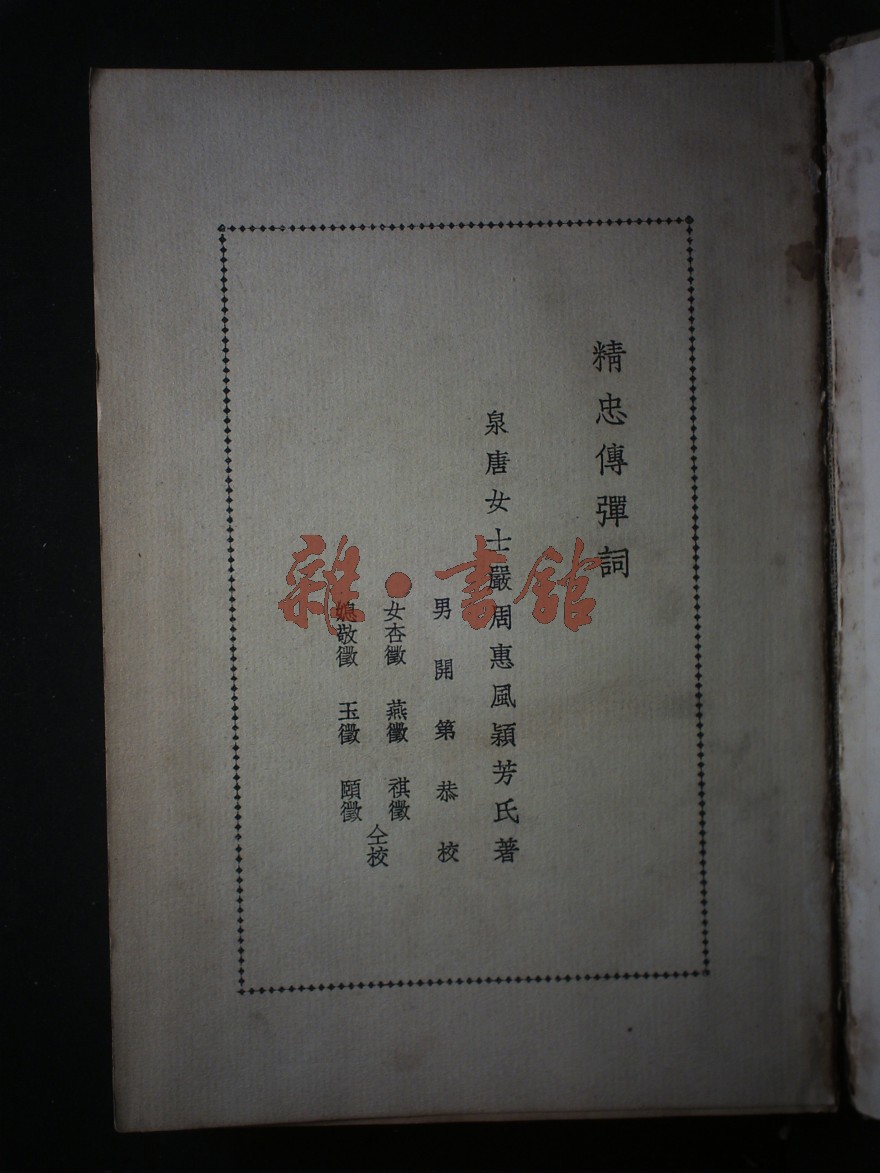 精忠傳彈詞
泉唐女士嚴周惠風穎芳氏著
男開第恭校
女杏徵 燕徵 祺徵
媳敬徵 玉徵 頤徵
仝校
雜·書館